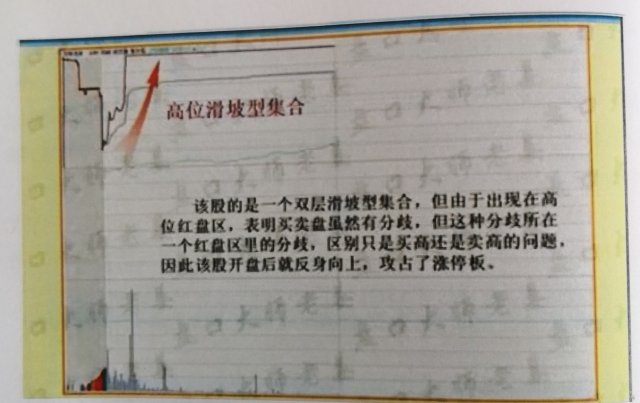 高位滑坡型集合
该股的是一个双层滑坡型集合，但由于出现在高
位红盘区，表明买卖盘虽然有分歧，但这种分歧所在
一个红盘区里的分歧，区别只是买高还是卖高的问题，
因此该股开盘后就反身向上，攻占了涨停板。